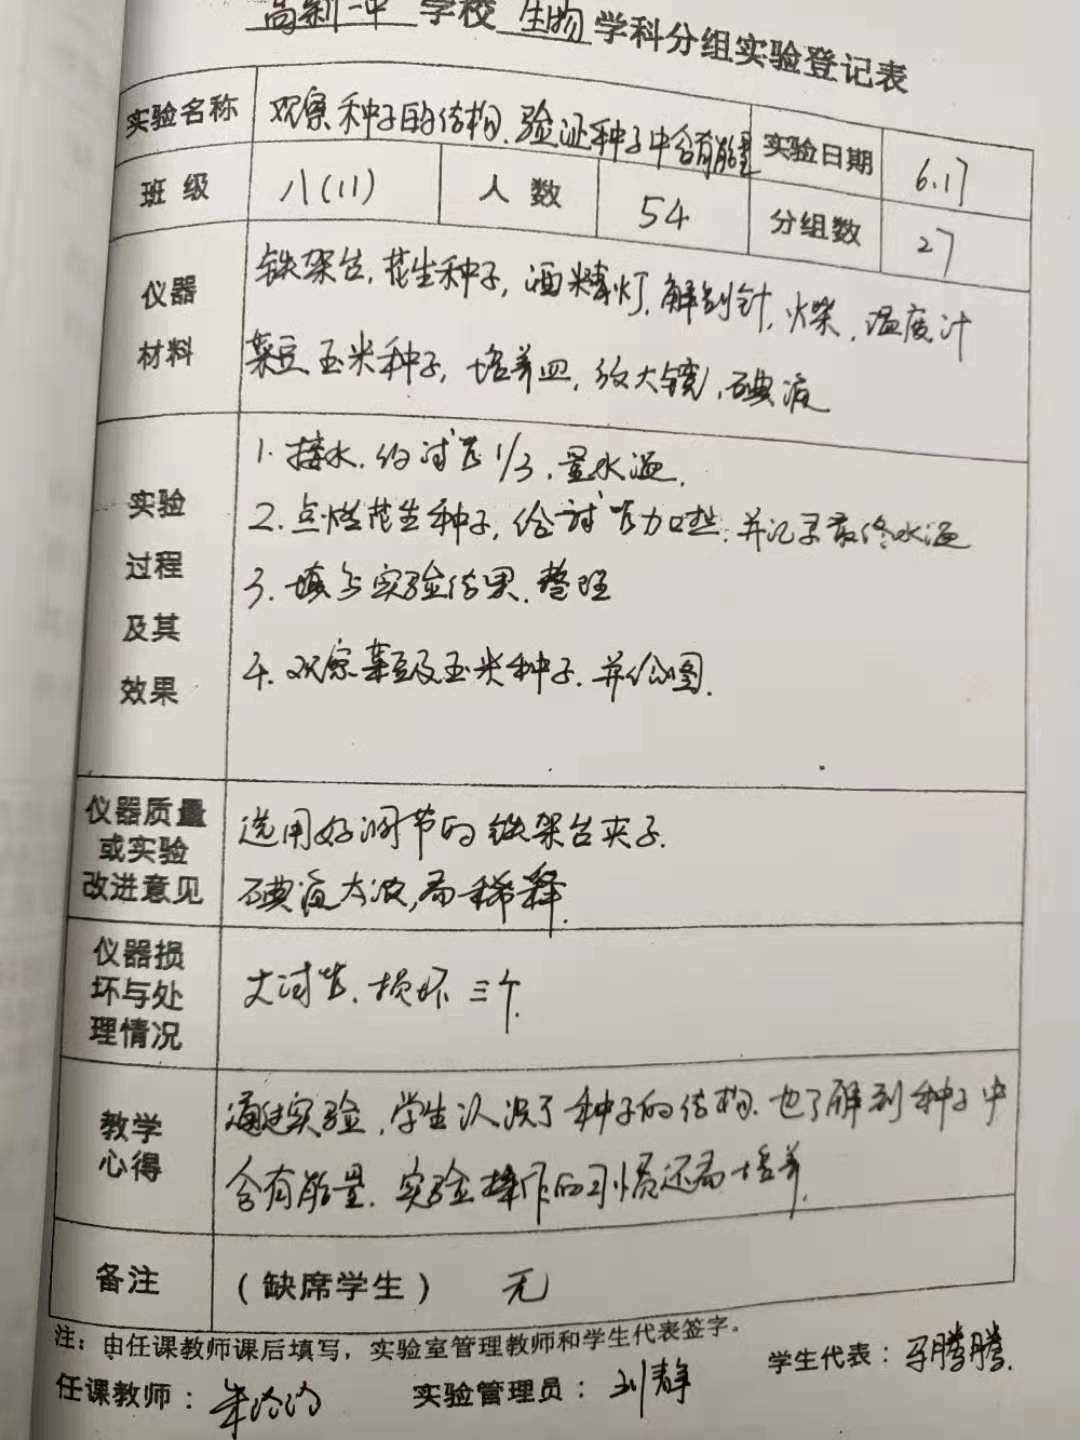 高新一中 学校 生物 学科分组实验登记表
实验名称 观察种子的结构、验证种子中含有能量 实验日期 6.17
班级 八(11) 人数 54 分组数 27
仪器材料 铁架台, 花生种子, 酒精灯, 解剖针, 火柴, 温度计
菜豆玉米种子, 培养皿, 放大镜, 碘液
实验过程及其效果
1. 接水, 约试管1/3, 量水温.
2. 点燃花生种子, 给试管加热, 并记录最终水温
3. 填写实验结果, 整理
4. 观察菜豆及玉米种子, 并绘图.
仪器质量或实验改进意见 选用好调节的铁架台夹子.
碘液太浓, 需稀释.
仪器损坏与处理情况 大试管, 损坏三个.
教学心得 通过实验, 学生认识了种子的结构, 也了解到种子中
含有能量. 实验操作的习惯还需培养.
备注 (缺席学生) 无
注: 由任课教师课后填写, 实验室管理教师和学生代表签字。
任课教师: 实验管理员: 刘静 学生代表: 马腾腾.